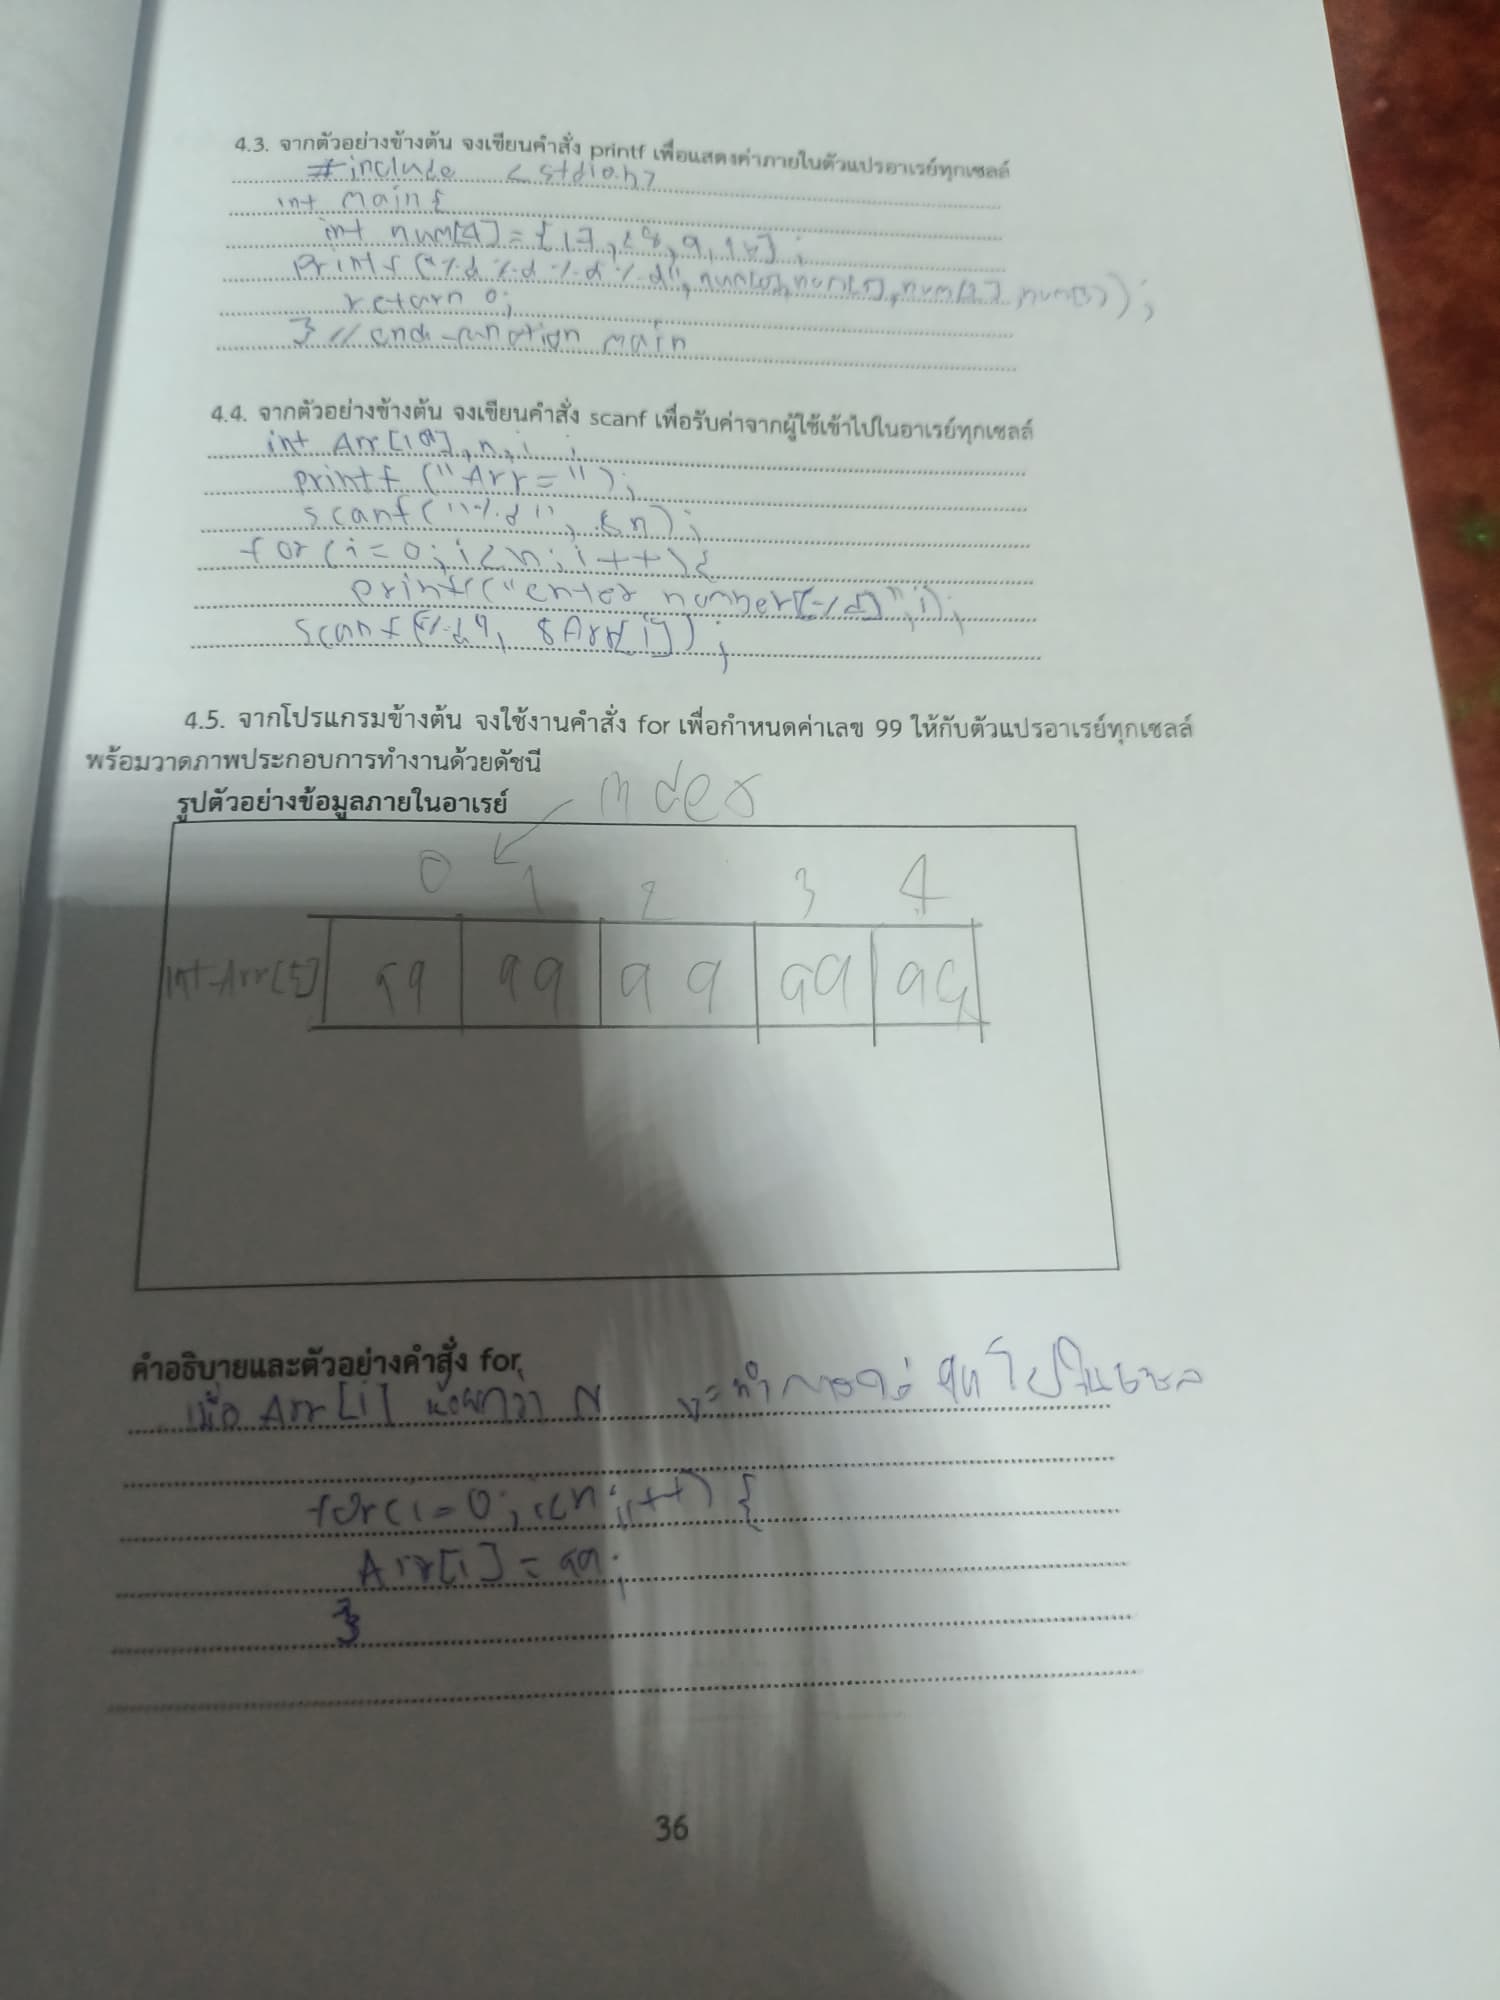 4.3. จากตัวอย่างข้างต้น จงเขียนคำสั่ง printf เพื่อแสดงค่าภายในตัวแปรอาเรย์ทุกเซลล์
#include <stdio.h>
int main{
int num[4] = {17, 28, 9,
printf("%d %d %d %d", num[0], num[1], num[2], num[3]);
return 0;
} // end-function main
4.4. จากตัวอย่างข้างต้น จงเขียนคำสั่ง scanf เพื่อรับค่าจากผู้ใช้เข้าไปในอาเรย์ทุกเซลล์
int Arr[10], n, i ;
printf ("Arr=");
scanf("%d", &n);
for(i=0; i<n; i++){
printf("enter number[%d]", i);
scanf("%d", &Arr[i]);
4.5. จากโปรแกรมข้างต้น จงใช้งานคำสั่ง for เพื่อกำหนดค่าเลข 99 ให้กับตัวแปรอาเรย์ทุกเซลล์
พร้อมวาดภาพประกอบการทำงานด้วยดัชนี
รูปตัวอย่างข้อมูลภายในอาเรย์
index
0 1 2 3 4
int Arr[5] 99 99 99 99 99
คำอธิบายและตัวอย่างคำสั่ง for
เมื่อ Arr[i] น้อยกว่า N จะทำการ ไปในเซล
for(i=0; i<n; i++) {
Arr[i] = 99;
}
36